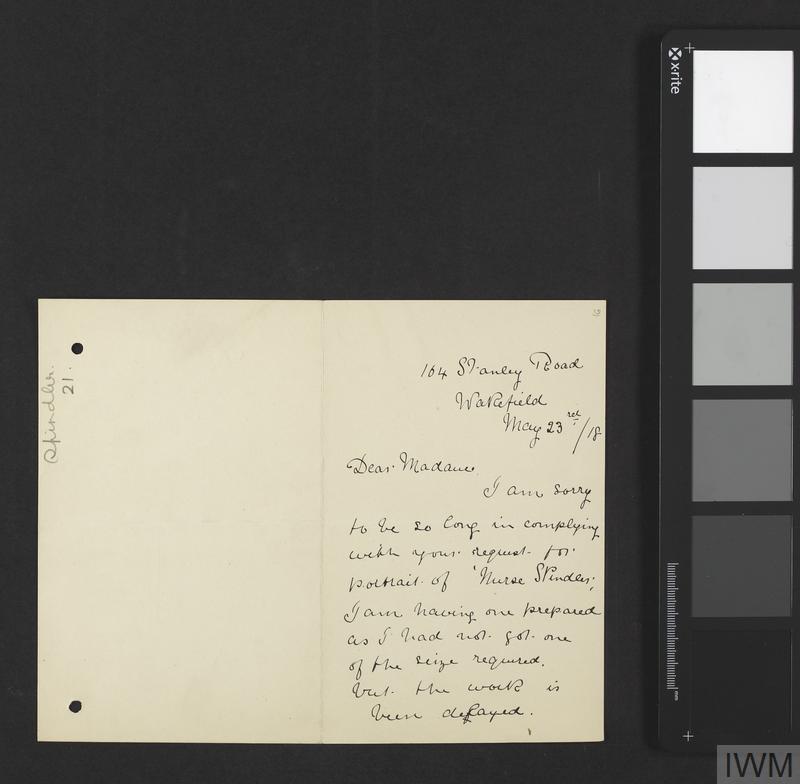 x·rite
32
Spindler.
21.
164 Stanley Road
Wakefield
May 23rd/18
Dear Madame
I am sorry
to be so long in complying
with your request for
portrait of 'Nurse Spindler,
I am having one prepared
as I had not got one
of the seize required.
but the work is
been delayed.
mm
IWM